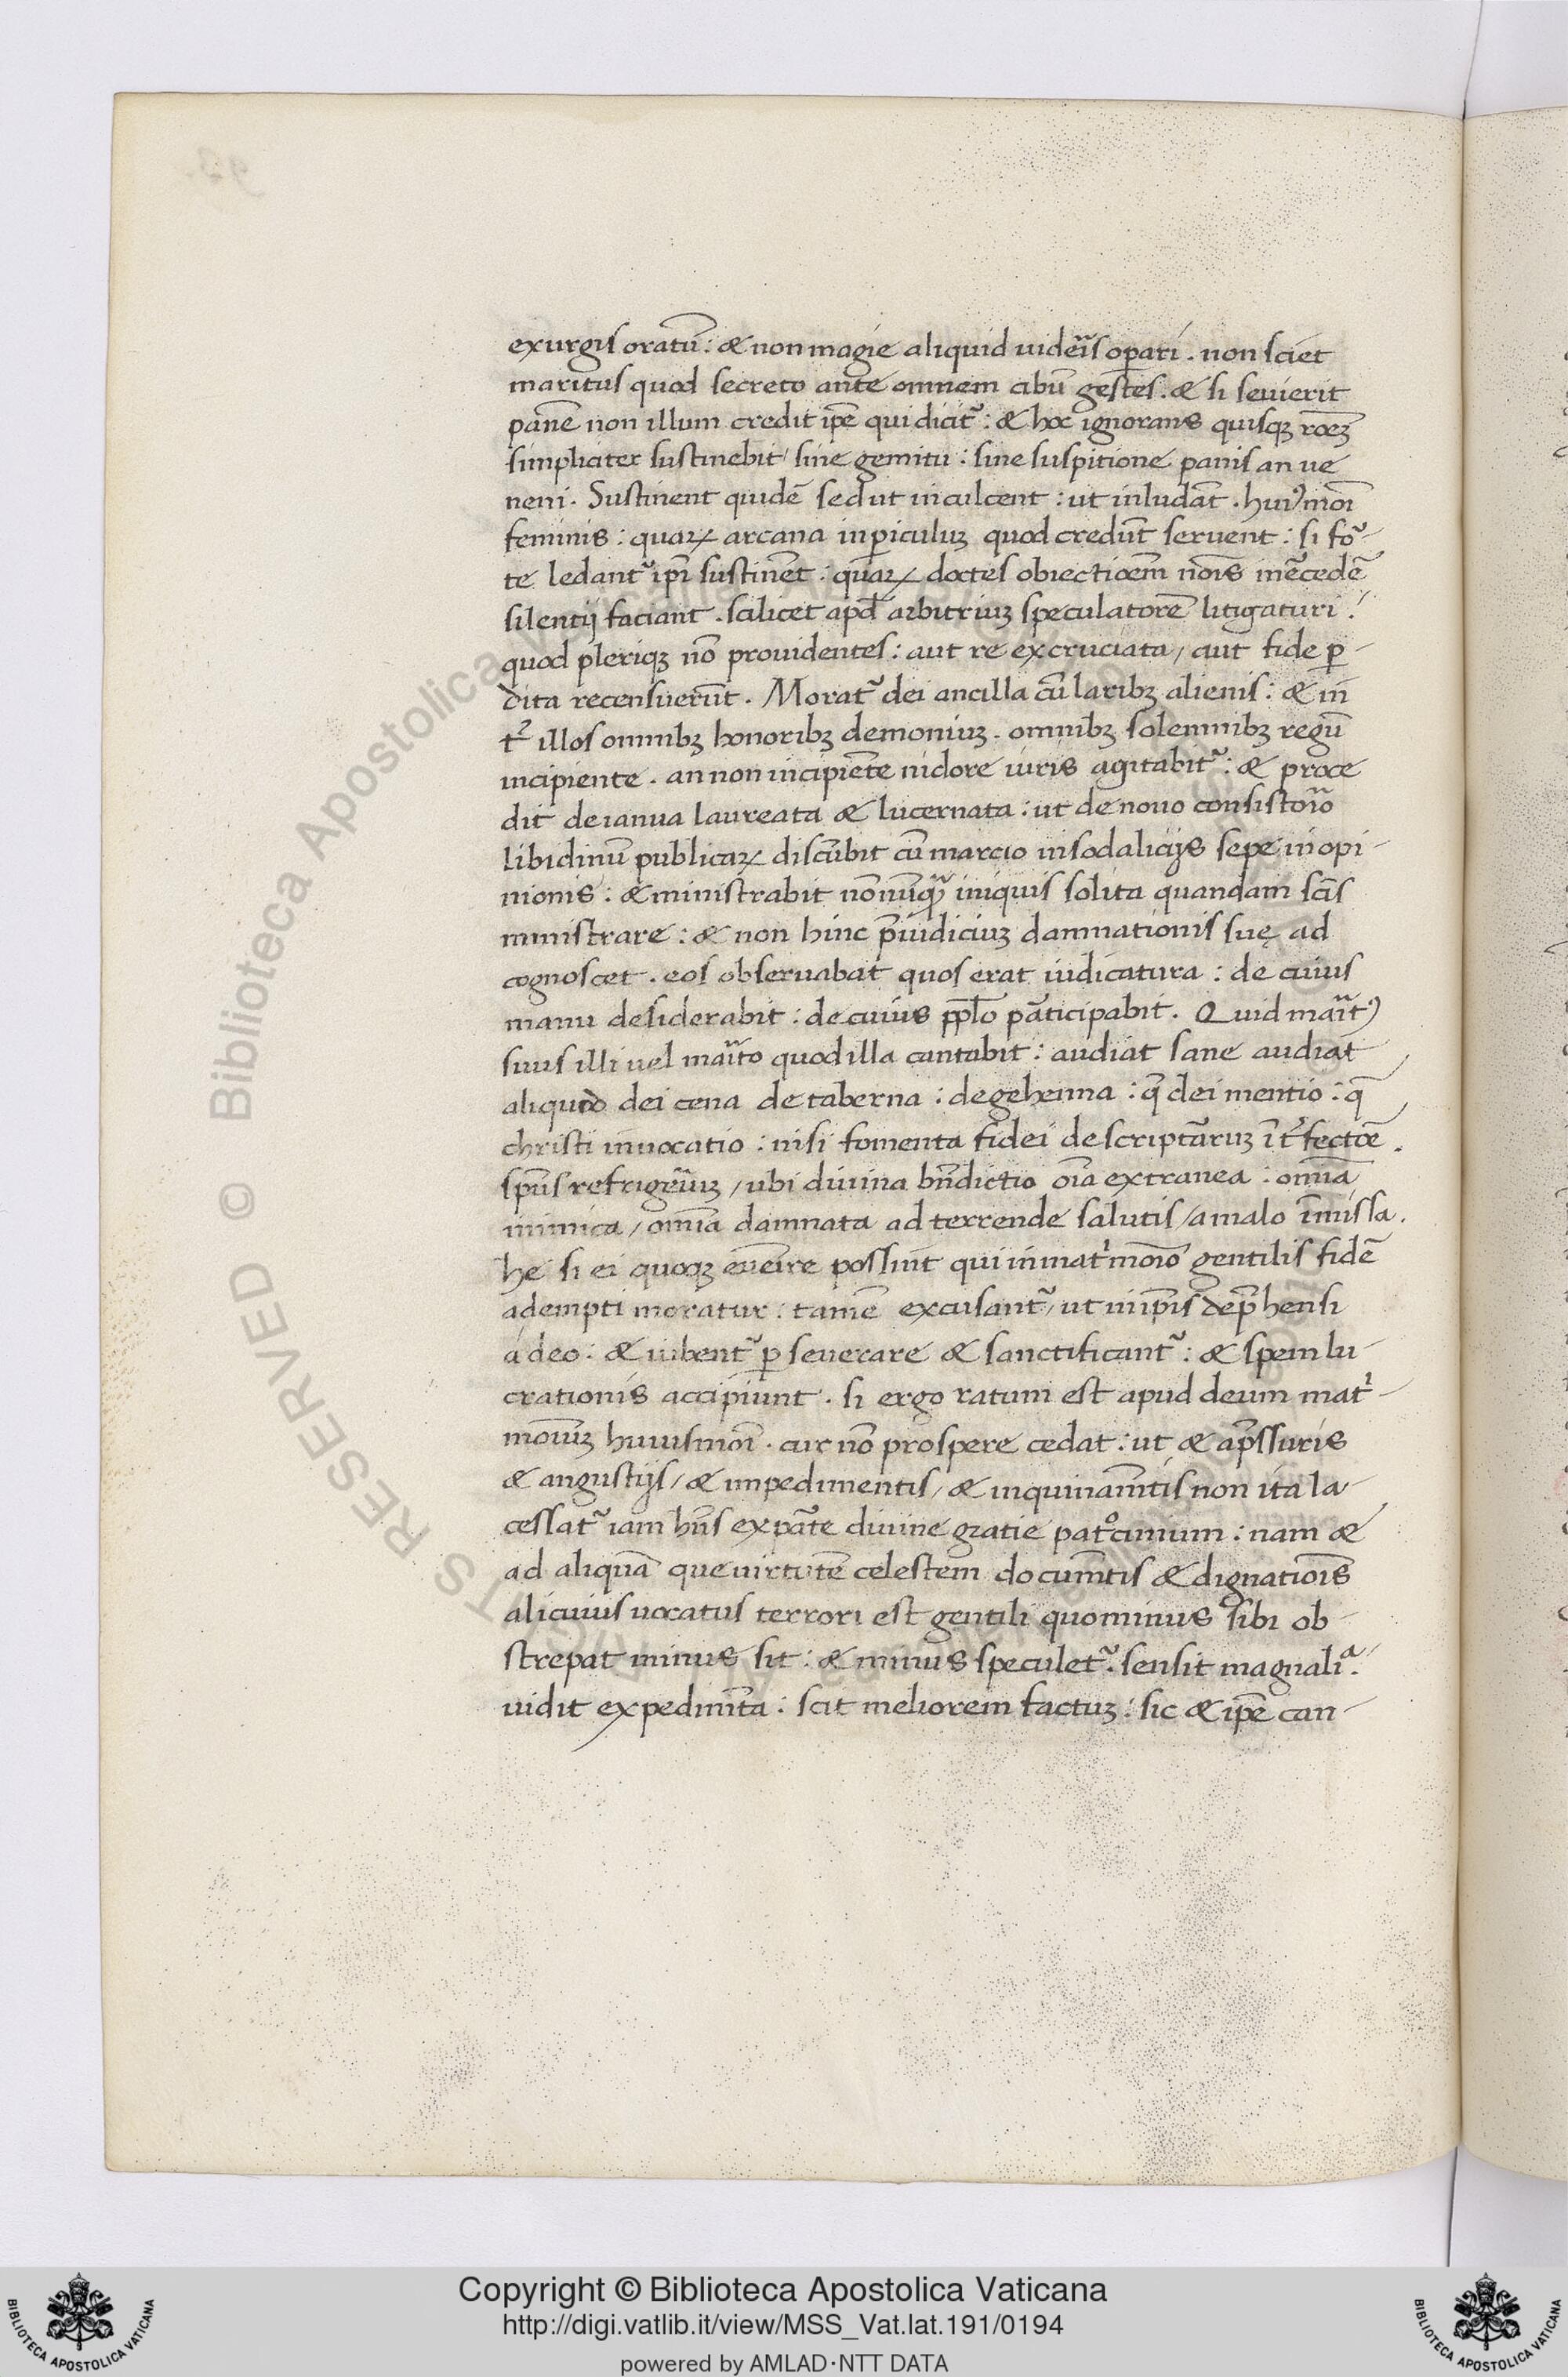 exurgis oratū: & non magie aliquid uideris operari. non sciet
maritus quod secreto ante omnem cibū gestes. & si sciuerit
panē non illum credit ip̄e qui dicit᷑: & hoc ignorans quisqꝫ rōeꝫ
simpliciter sustinebit / sine gemitu: sine suspitione panis an ue
neni. Sustinent quidē sed ut inculcent: ut inludāt. huiꝰmōi
feminis: quaꝝ arcana in ꝑiculuꝫ quod credūt seruent: si for-
te ledant᷑ ip̄i sustinēt: quaꝝ doctes obiectiōem nōis mercedē
silentij faciant. scilicet apd̄ arbitriuꝫ speculatorē litigaturi:
quod pleriqꝫ nō prouidentes: aut re excruciata / aut fide ꝑ-
dita recensuerūt. Morat᷑ dei ancilla cū laribꝫ alienis: & in
t᷑ illos omnibꝫ honoribꝫ demoniuꝫ. omnibꝫ solemnibꝫ regū
incipiente. an non incipiēte nidore iuris agitabit᷑: & proce
dit de ianua laureata & lucernata: ut de nouo consistorio
libidinū publicaꝝ discūbit cū marcio in sodalicijs sepe in opi-
nionis: & ministrabit nōnūqꝫ iniquis solita quandam sc̄is
ministrare: & non hinc p̄iudiciuꝫ damnationis suę ad
cognoscet. eos obseruabat quos erat iudicatura: de cuius
manu desiderabit: de cuius pp̄lo ꝑticipabit. Quid maritꝰ
suus illi uel marito quod illa cantabit: audiat sane audiat
aliquid dei cena de taberna: de gehenna: q̄ dei mentio: q̄
christi inuocatio: nisi fomenta fidei de scripturaruꝫ īt᷑fectōe.
sp̄us refrigeriuꝫ / ubi diuina bn̄dictio oīa extranea: omīa
inimica / omīa damnata ad terrende salutis / a malo īmissa.
he si ei quoqꝫ euēire possint qui in matimōio gentilis fidē
adempti moratur: tamē excusant᷑ / ut in ip̄is dep̄hensi
a deo: & iubent᷑ ꝑseuerare & sanctificant᷑: & spem lu-
crationis accipiunt. si ergo ratum est apud deum mat-
moīuꝫ huiusmōi. cur nō prospere cedat: ut & a p̄ssuris
& angustijs / & impedimentis / & inquinamītis non ita la-
cessat᷑ iam hn̄s ex parte diuine gratie patociniuim: nam &
ad aliquā que uirtutē celestem documētis & dignatiōis
alicuius uocatus terrori est gentili quominus sibi ob-
strepat minus sit: & minus speculet᷑. sensit magnalia.
uidit expedimīta: scit meliorem factuꝫ: sic & ip̄e can-
Copyright © Biblioteca Apostolica Vaticana
http://digi.vatlib.it/view/MSS_Vat.lat.191/0194
powered by AMLAD·NTT DATA
BIBLIOTECA APOSTOLICA VATICANA
BIBLIOTECA APOSTOLICA VATICANA